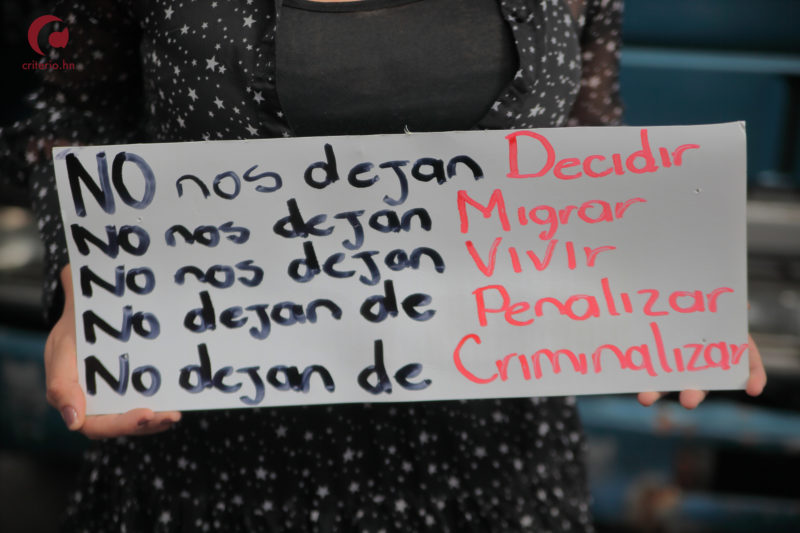 criterio.hn
NO nos dejan Decidir
No nos dejan Migrar
No nos dejan Vivir
No dejan de Penalizar
No dejan de Criminalizar